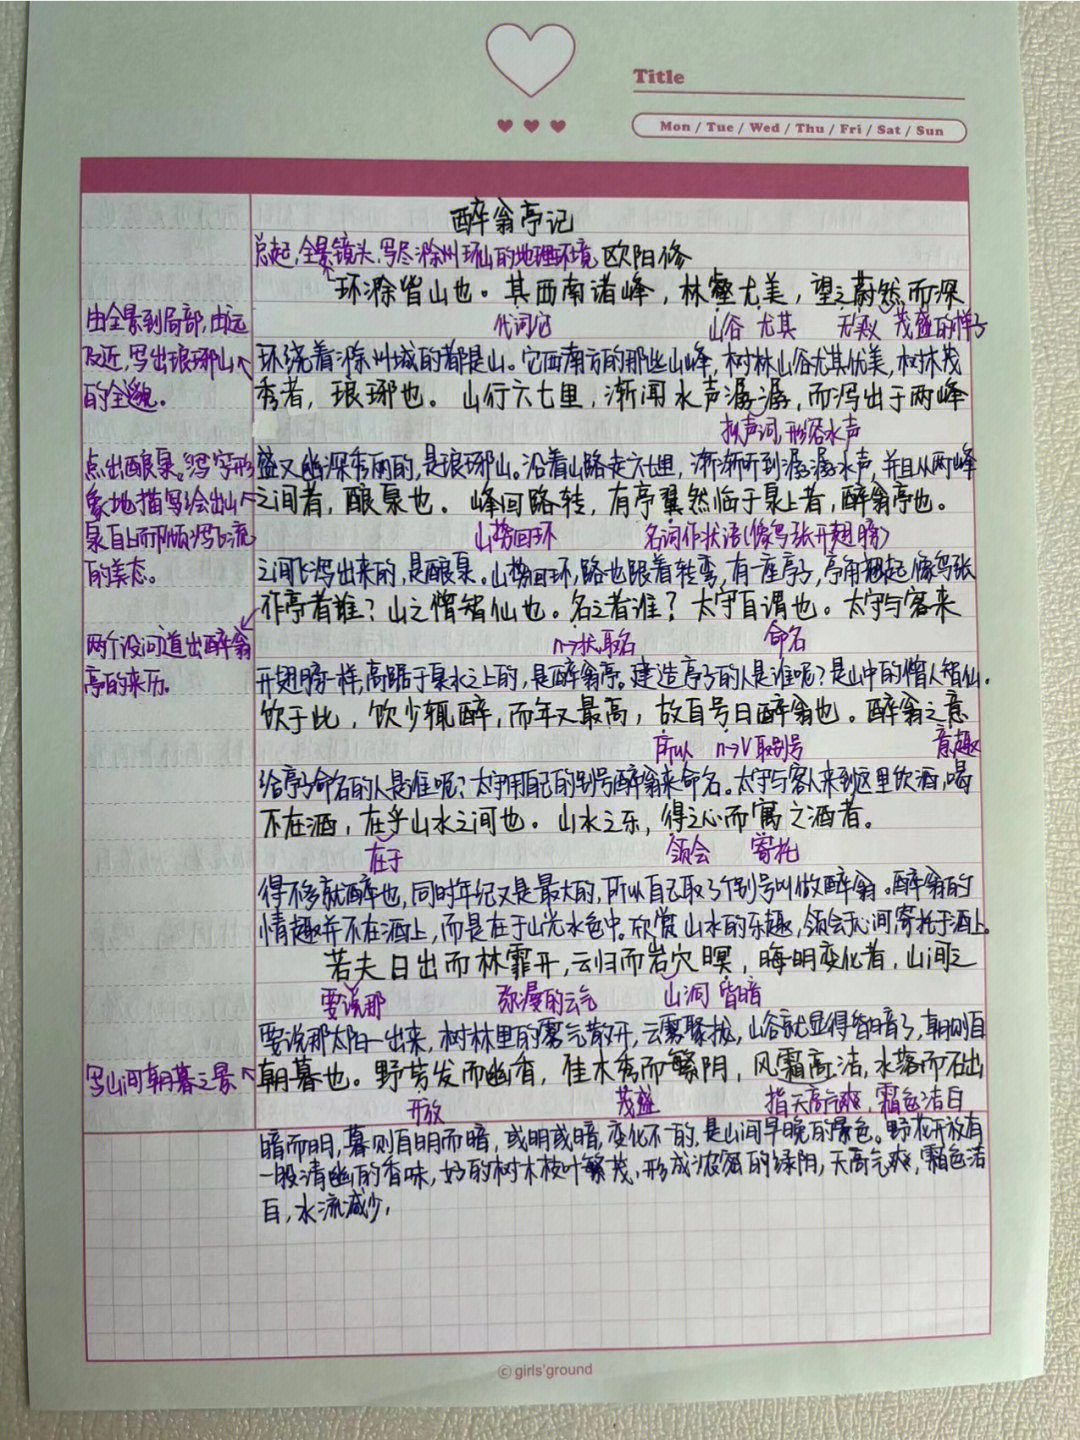 Title
Mon / Tue / Wed / Thu / Fri / Sat / Sun
醉翁亭记
总起,全景镜头,写尽滁州环山的地理环境 欧阳修
环滁皆山也。其西南诸峰,林壑尤美,望之蔚然而深
由全景到局部,由远 代词它 山谷 尤其 无义 茂盛的样子
及近,写出琅琊山 环绕着滁州城的都是山。它西南方的那些山峰,树林山谷尤其优美,树木茂
的全貌。 秀者,琅琊也。山行六七里,渐闻水声潺潺,而泻出于两峰
拟声词,形容水声
点出酿泉。写字形 盛又幽深秀丽的,是琅琊山。沿着山路走六七里,渐渐听到潺潺水声,并且从两峰
象地描写绘出山 之间者,酿泉也。峰回路转,有亭翼然临于泉上者,醉翁亭也。
泉自上而下倾泻飞流 山势回环 名词作状语(像鸟张开翅膀)
的美态。 之间飞泻出来的,是酿泉。山势回环,路也跟着转弯,有一座亭子,亭角翘起像鸟张
作亭者谁?山之僧智仙也。名之者谁?太守自谓也。太守与客来
两个设问道出醉翁 n→状,取名 命名
亭的来历。 开翅膀一样,高踞于泉水之上的,是醉翁亭。建造亭子的人是谁呢?是山中的僧人智仙。
饮于此,饮少辄醉,而年又最高,故自号曰醉翁也。醉翁之意
所以 n→v 取别号 意趣
给亭子命名的人是谁呢?太守用自己的别号醉翁来命名。太守与客人来到这里饮酒,喝
不在酒,在乎山水之间也。山水之乐,得之心而寓之酒者。
在于 领会 寄托
得不多就醉也,同时年纪又是最大的,所以自己取了个别号叫做醉翁。醉翁的
情趣并不在酒上,而是在于山光水色中。欣赏山水的乐趣,领会于心间,寄托于酒上。
若夫日出而林霏开,云归而岩穴暝,晦明变化者,山间之
要说那 弥漫的云气 山洞 昏暗
要说那太阳一出来,树林里的雾气散开,云雾聚拢,山谷就显得昏暗了,朝则自
写山间朝暮之景 朝暮也。野芳发而幽香,佳木秀而繁阴,风霜高洁,水落而石出
开放 茂盛 指天高气爽,霜色洁白
暗而明,暮则自明而暗,或明或暗,变化不一的,是山间早晚的景色。野花开放有
一股清幽的香味,好的树木枝叶繁茂,形成浓密的绿阴,天高气爽,霜色洁
白,水流减少,
© girls'ground